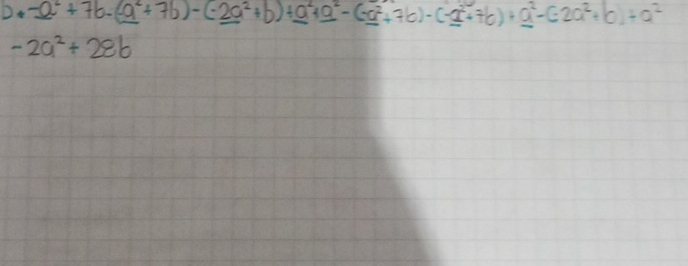 D. -a² + 7b - (a² + 7b) - (-2a² + b) + a² + a² - (-a² + 7b) - (-a² + 7b) + a² - (-2a² + b) + a²
-2a² + 28b